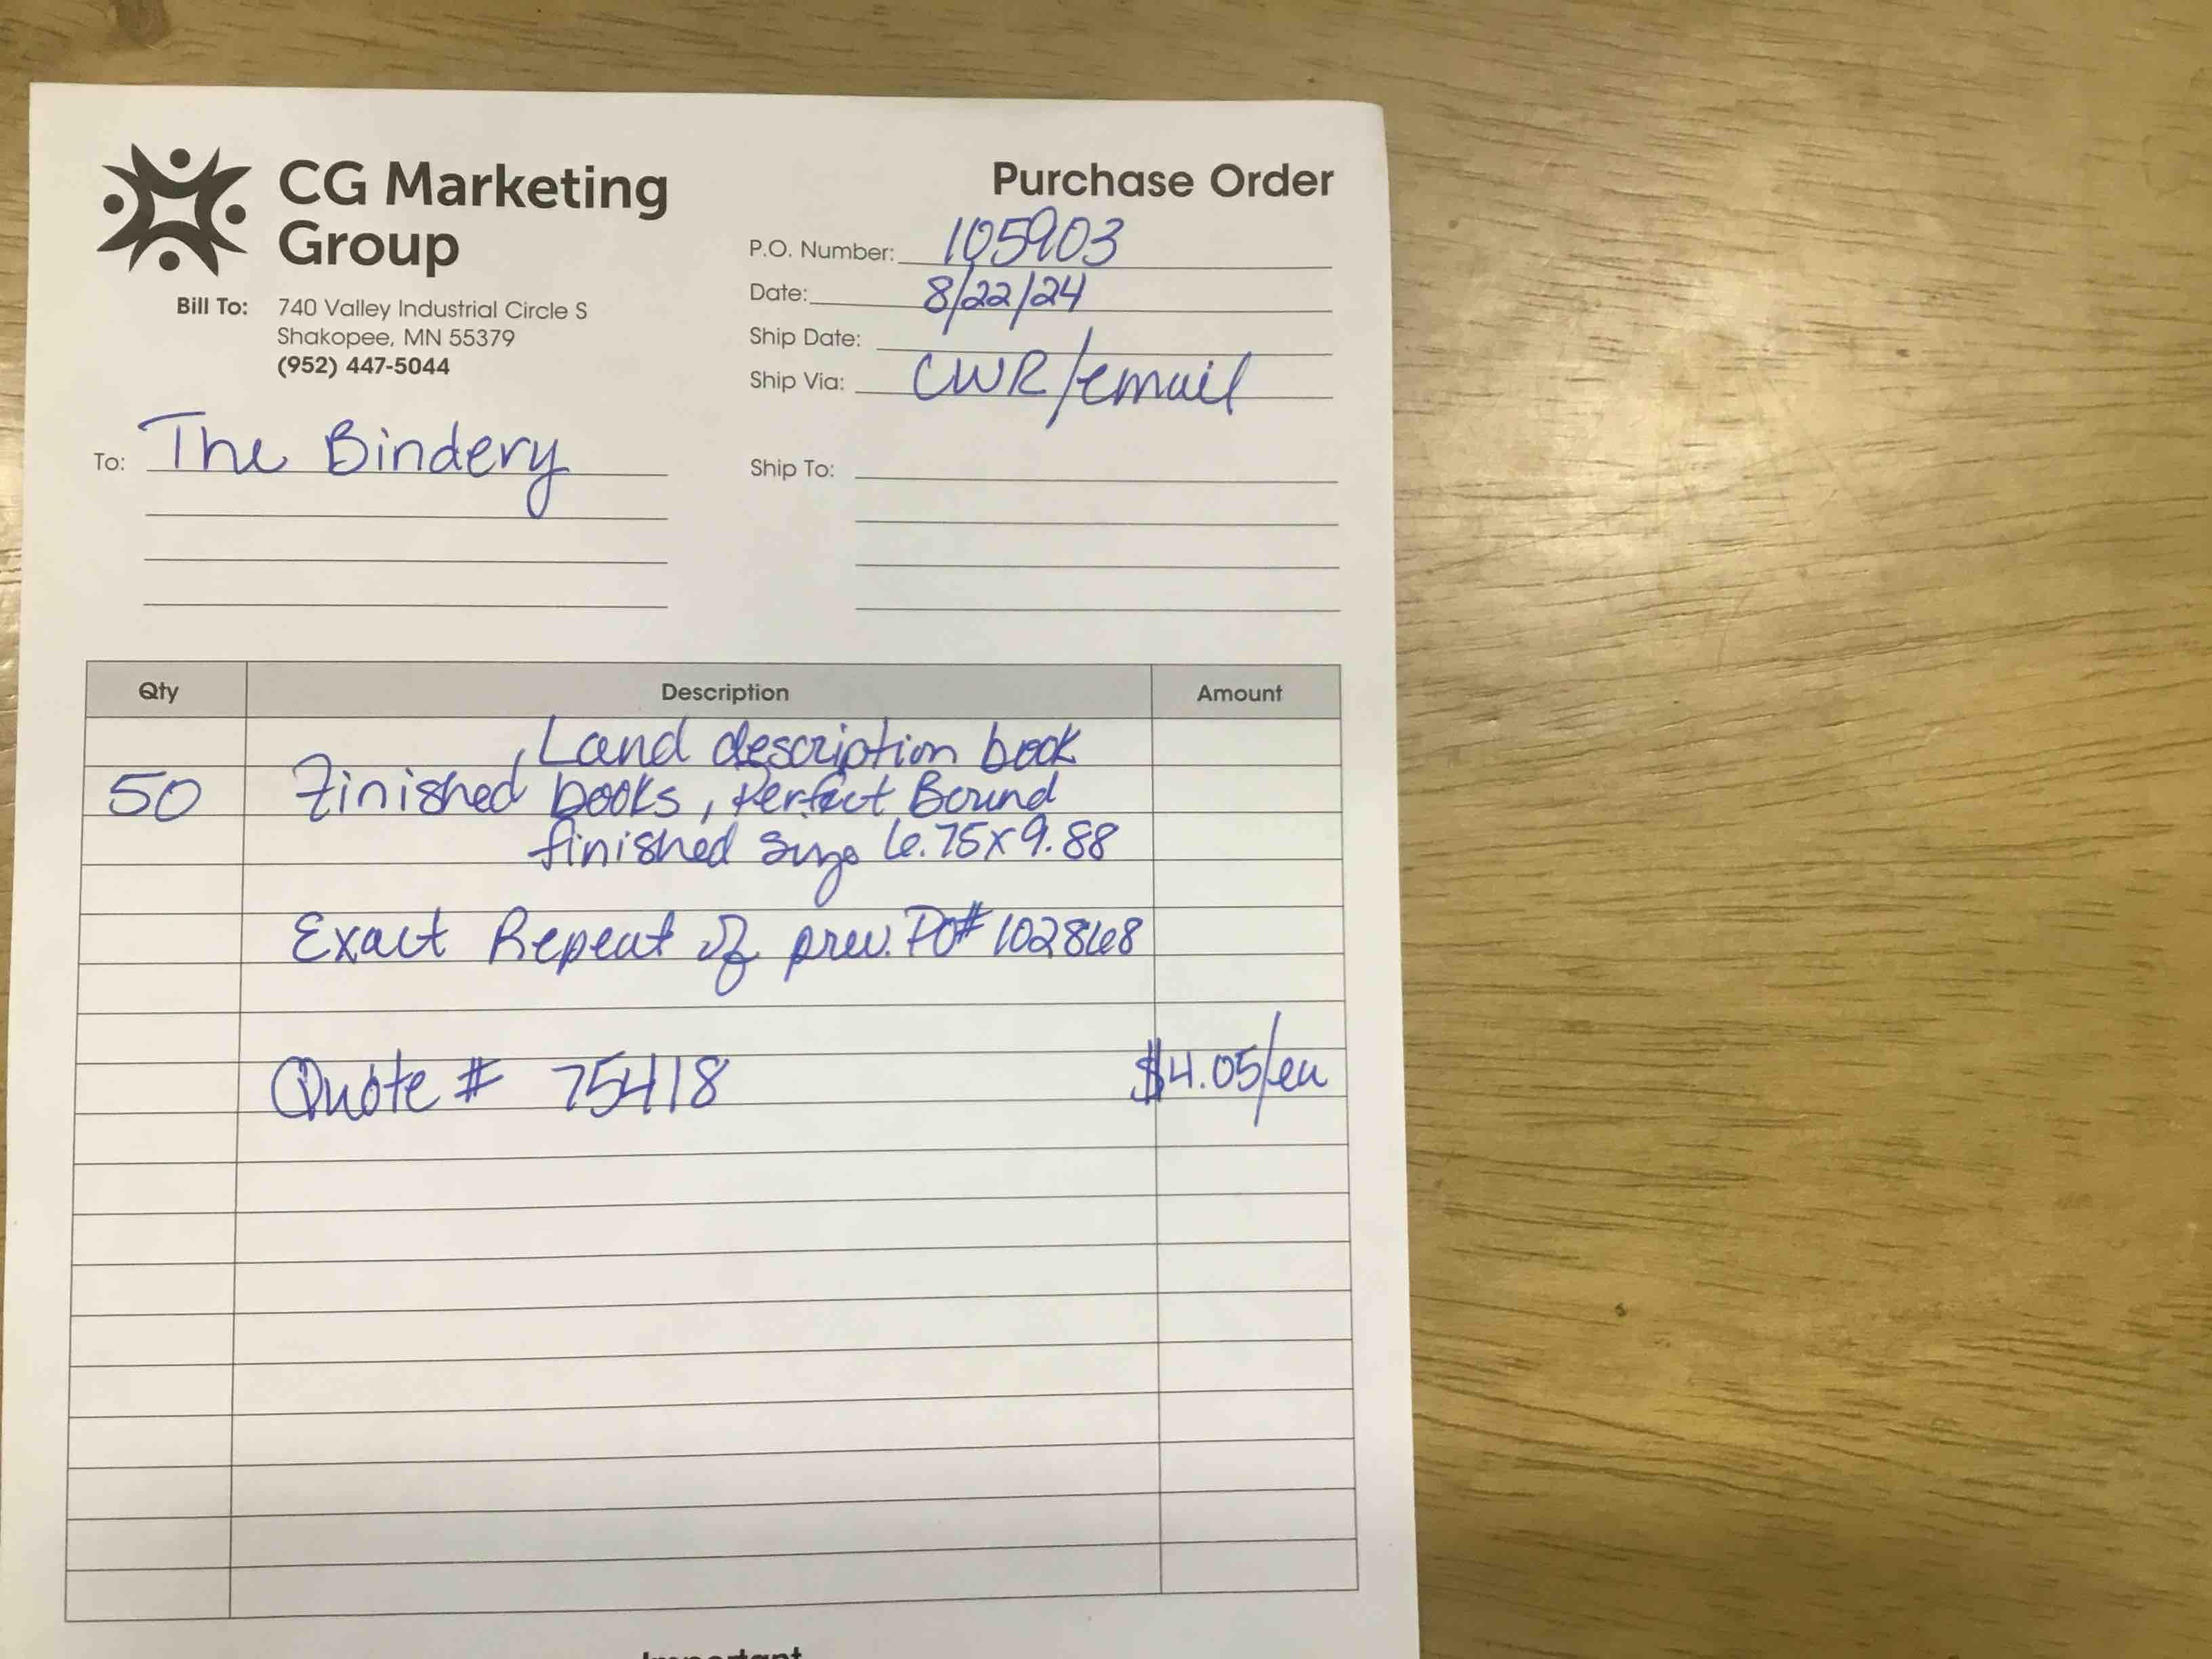 CG Marketing
Group
Purchase Order
P.O. Number: 105903
Date: 8/22/24
Ship Date:
Ship Via: CWR/email
Bill To: 740 Valley Industrial Circle S
Shakopee, MN 55379
(952) 447-5044
To: The Bindery
Ship To:
Qty Description Amount
, Land description book
50 Finished books, Perfect Bound
finished size 6.75x9.88
Exact Repeat of prev. PO# 102868
Quote # 75418 $4.05/ea
Important